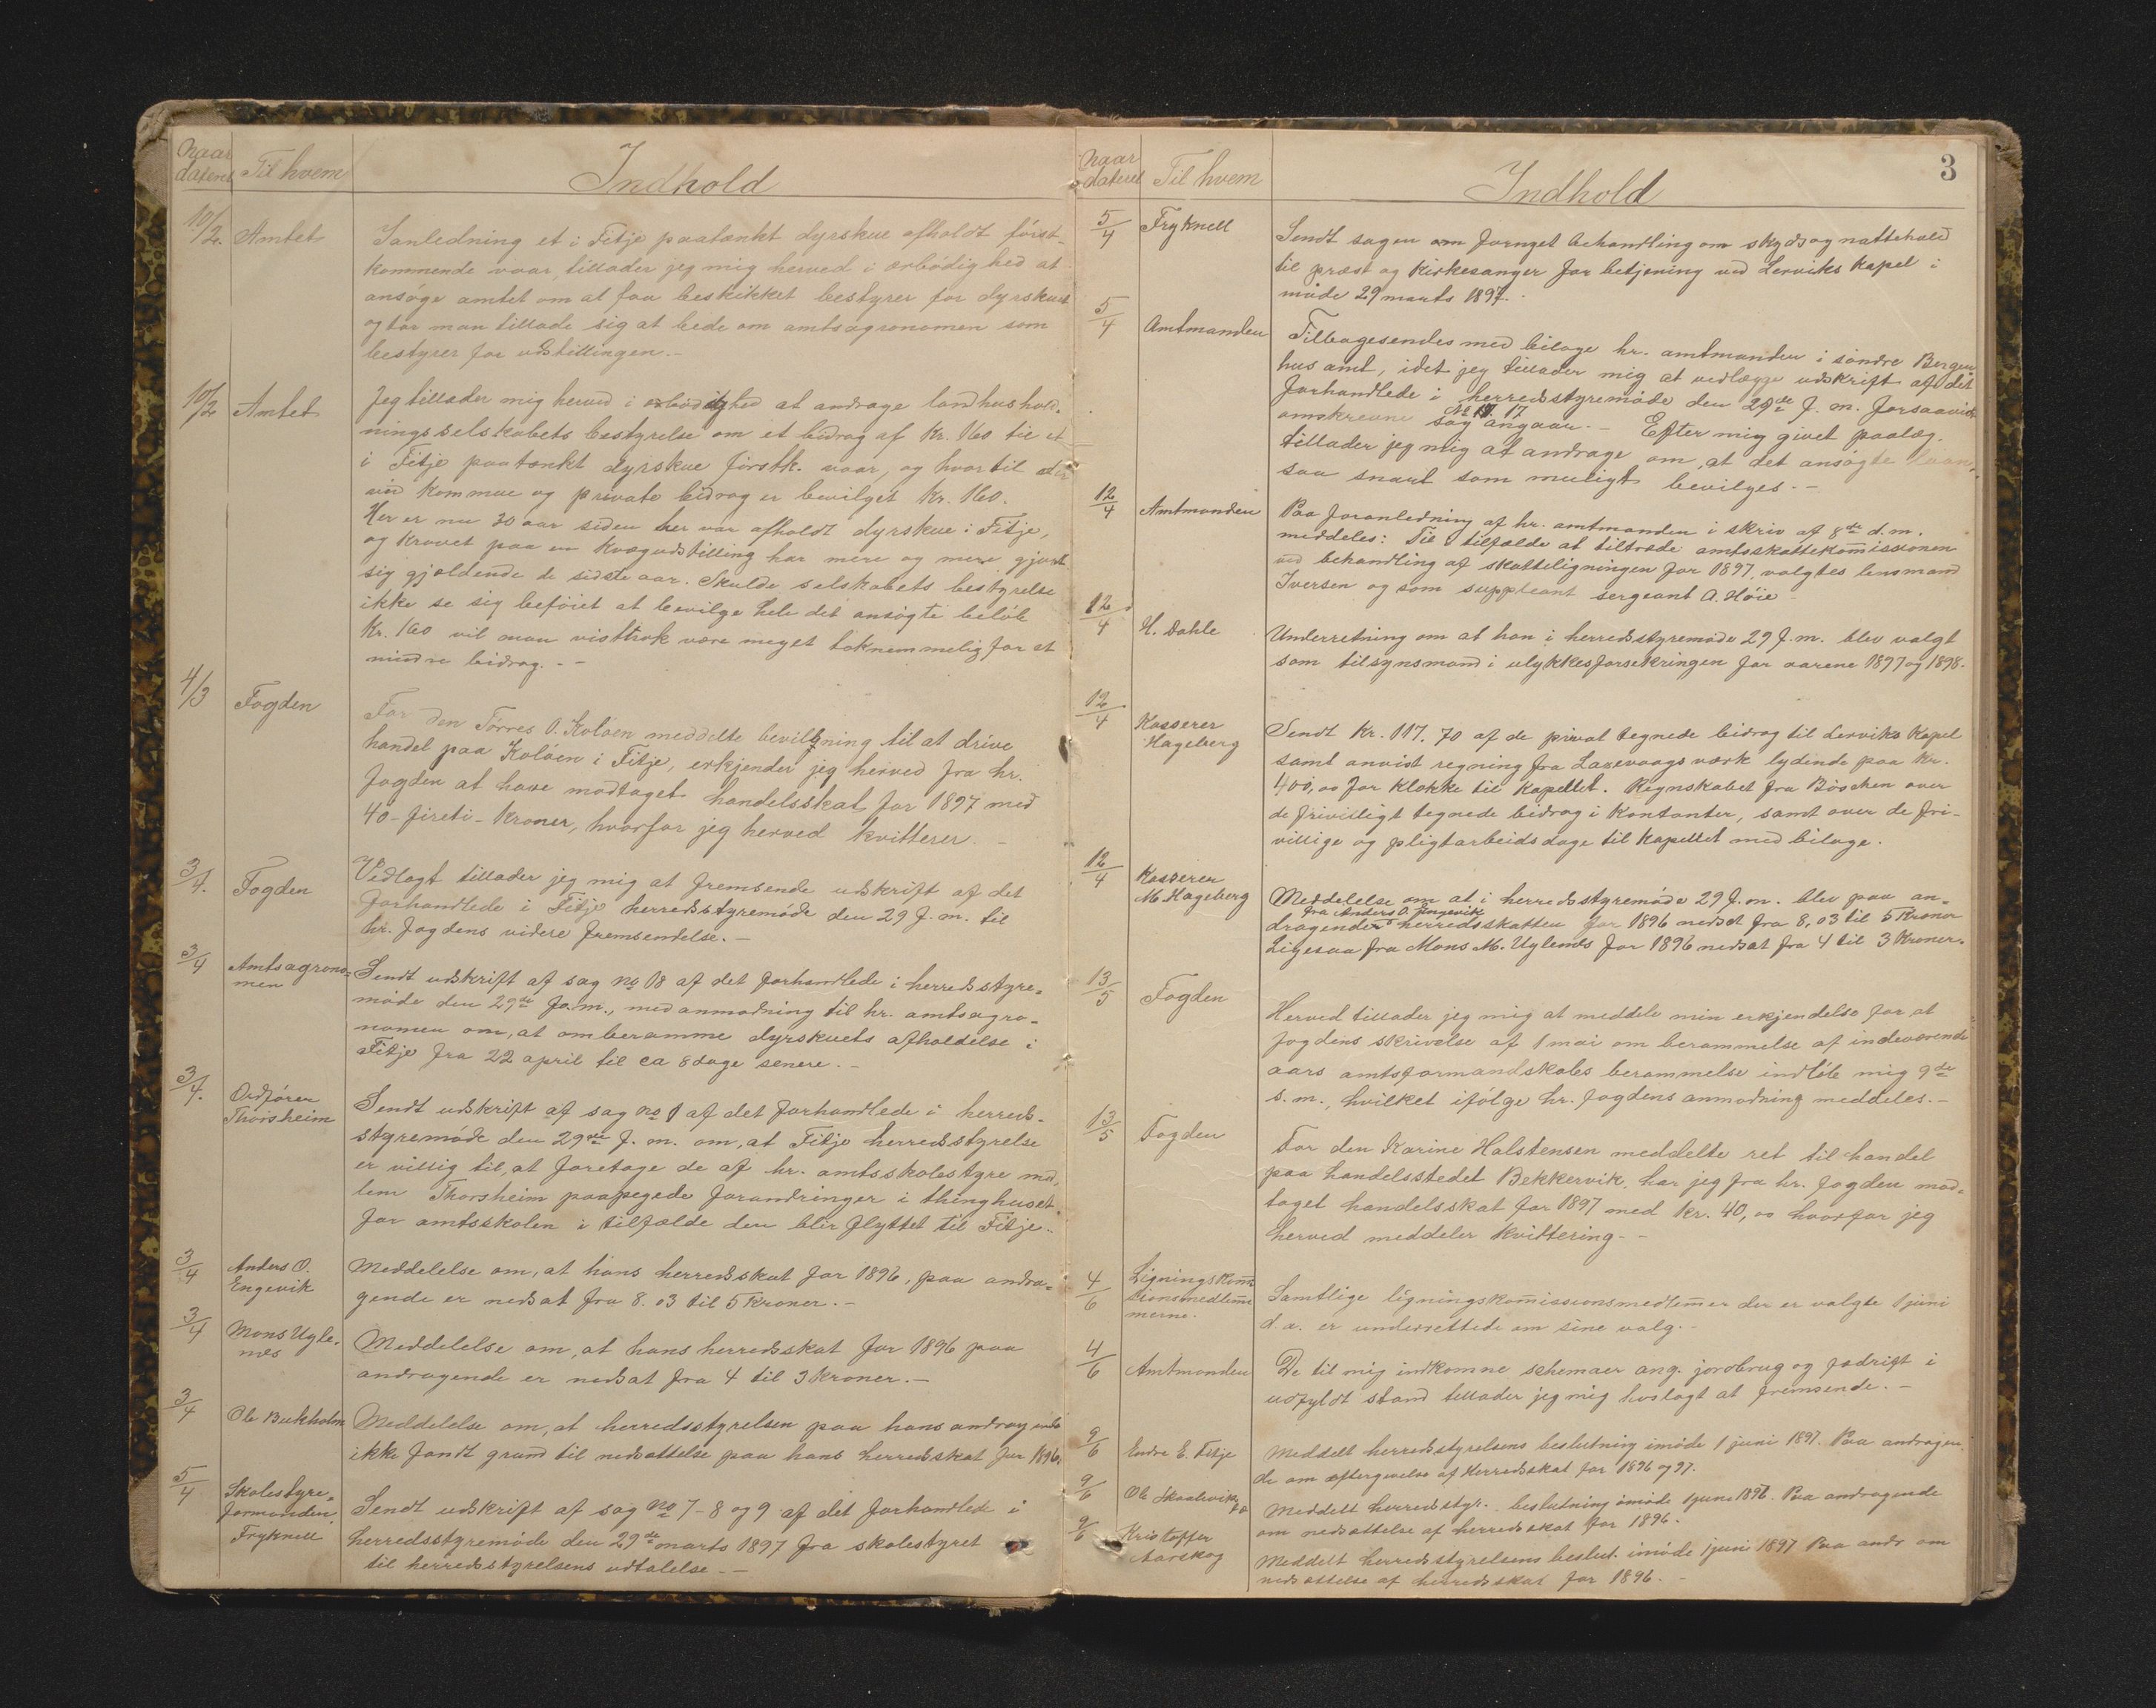 Naar
dateret
Til hvem
Indhold
10/2. Amtet
Ianledning et i Fitje paatænkt dyrskue afholdt först-
kommende vaar, tillader jeg mig herved i ærbödighed at
ansöge amtet om at faa beskikket bestyrer for dyrskuet
og tör man tillade sig at bede om amtsagronomen som
bestyrer for udstillingen.-
10/2 Amtet
Jeg tillader mig herved i ærbödighed at andrage landhushold-
ningsselskabets bestyrelse om et bidrag af Kr. 160 til et
i Fitje paatænkt dyrskue förstk. vaar, og hvortil der
ved kommue og private bidrag er bevilget Kr. 160.
Her er nu 30 aar siden her var afholdt dyrskue i Fitje,
og kravet paa en kvægudstilling har mere og mere gjort
sig gjældende de sidste aar. Skulde selskabets bestyrelse
ikke se sig beföiet at bevilge hele det ansögte belöb
Kr. 160 vil man visstnok være meget taknemmelig for et
mindre bidrag. - -
4/3 Fogden
For den Törres O. Kolöen meddelte bevilgning til at drive
handel paa Kolöen i Fitje, erkjender jeg herved fra hr.
fogden at have modtaget handelsskat for 1897 med
40 - fireti - Kroner, hvorfor jeg herved kvitterer. -
3/4. Fogden
Vedlagt tillader jeg mig at fremsende udskrift af det
forhandlede i Fitje herredsstyremöde den 29 f. m. til
hr. fogdens videre fremsendelse. -
3/4 Amtsagrono-
men
Sendt udskrift af sag no 18 af det forhandlede i herredsstyre-
möde den 29de f.m., med anmodning til hr. amtsagro-
nomen om, at omberamme dyrskuets afholdelse i
Fitje fra 22 april til ca 8 dage senere. -
3/4. Ordförer
Thorsheim
Sendt udskrift af sag no 1 af det forhandlede i herreds-
styremöde den 29de f. m. om, at Fitje herredsstyrelse
er villig til, at foretage de af hr. amtsskolestyre med-
lem Thorsheim paapegede forandringer i thinghuset
for amtsskolen i tilfælde den blir flyttet til Fitje.-
3/4 Anders O.
Engevik
Meddelelse om, at hans herredsskat for 1896, paa andra-
gende er nedsat fra 8.03 til 5 Kroner. -
3/4 Mons Ugle-
næs
Meddelelse om, at hans herredsskat for 1896 paa
andragende er nedsat fra 4 til 3 Kroner. -
3/4 Ole Bukholm
Meddelelse om, at herredsstyrelsen paa hans andragende
ikke fandt grund til nedsættelse paa hans herredsskat for 1896.
5/4 Skolestyre-
formanden
Fryknell
Sendt udskrift af sag no 7-8 og 9 af det forhandlede i
herredsstyremöde den 29de marts 1897 fra skolestyret
til herredsstyrelsens udtalelse. -
Naar
dateret
Til hvem
Indhold
3
5/4 Fryknell
Sendt sagen om fornyet behandling om skyds og nattehold
til præst og kirkesanger for betjening ved Lerviks kapel i
möde 29 marts 1897.
5/4 Amtmanden
Tilbagesendes med bilage hr. amtmanden i söndre Bergen
hus amt, idet jeg tillader mig at vedlægge udskrift af det
forhandlede i herredsstyremöde den 29de f. m. forsaavidt
omskrevne sag No 17 angaar. - Efter mig givet paalæg,
tillader jeg mig at andrage om, at det ansögte laan,
saa snart som muligt bevilges. -
12/4 Amtmanden
Paa foranledning af hr. amtmanden i skriv af 8de d.m.
meddeles: Til i tilfælde at tiltræde amtsskattekom̅issionen
ved behandling af skatteligningen for 1897, valgtes lensmand
Iversen og som suppleant sergeant A. Höie -
12/4 H. Dahle
Underretning om at han i herredsstyremöde 29 f. m. blev valgt
som tilsynsmand i ulykkesforsekringen for aarene 1897 og 1898.
12/4 Kasserer
Hageberg
Sendt Kr. 117.70 af de privat tegnede bidrag til Lerviks kapel
samt anvist regning fra Laxevaags værk lydende paa Kr.
400,00 for klokke til kapellet. Regnskabet fra Böschen over
de frivilligt tegnede bidrag i kontanter, samt over de fri-
villige og pligtarbeidsdage til kapellet med bilage.
12/4 Kasserer
M. Hageberg
Meddelelse om at i herredsstyremöde 29 f. m. blev paa an-
dragende fra Anders O. Engevik herredsskatten for 1896 nedsat fra 8,03 til 5 Kroner
Ligesaa fra Mons M. Uglenes for 1896 nedsat fra 4 til 3 Kroner.
13/5 Fogden
Herved tillader jeg mig at meddele min erkjendelse for at
fogdens skrivelse af 1 mai om berammelse af indeværende
aars amtsformandskabs berammelse indlöb mig 9de
s.m., hvilket ifölge hr. fogdens anmodning meddeles. -
13/5 Fogden
For den Karine Halstensen meddelte ret til handel
paa handelsstedet Bekkervik, har jeg fra hr. fogden mod-
taget handelsskat for 1897 med kr. 40,00 hvorfor jeg
herved meddeler kvittering. -
4/6 Ligningskom̅is
sionsmedlem̅
merne.
Samtlige ligningskom̅issionsmedlem̅er der er valgte 1 juni
d.a. er underrettede om sine valg. -
4/6 Amtmanden
De til mig indkomne schemaer ang. jordbrug og fædrift i
udfyldt stand tillader jeg mig hoslagt at fremsende. -
9/6 Endre E. Fitje
Meddelt herredsstyrelsens beslutning imöde 1 juni 1897. Paa andragen
de om eftergivelse af Herredsskat for 1896 og 97.
9/6 Ole Skaalevik
Meddelt herredsstyr. beslutning imöde 1 juni 1897. Paa andragende
om nedsættelse af herredsskat for 1896.
9/6 Kristoffer
Aarskog
Meddelt herredsstyrelsens beslut. imöde 1 juni 1897 Paa andr om
nedsættelse af herredsskat for 1896. -